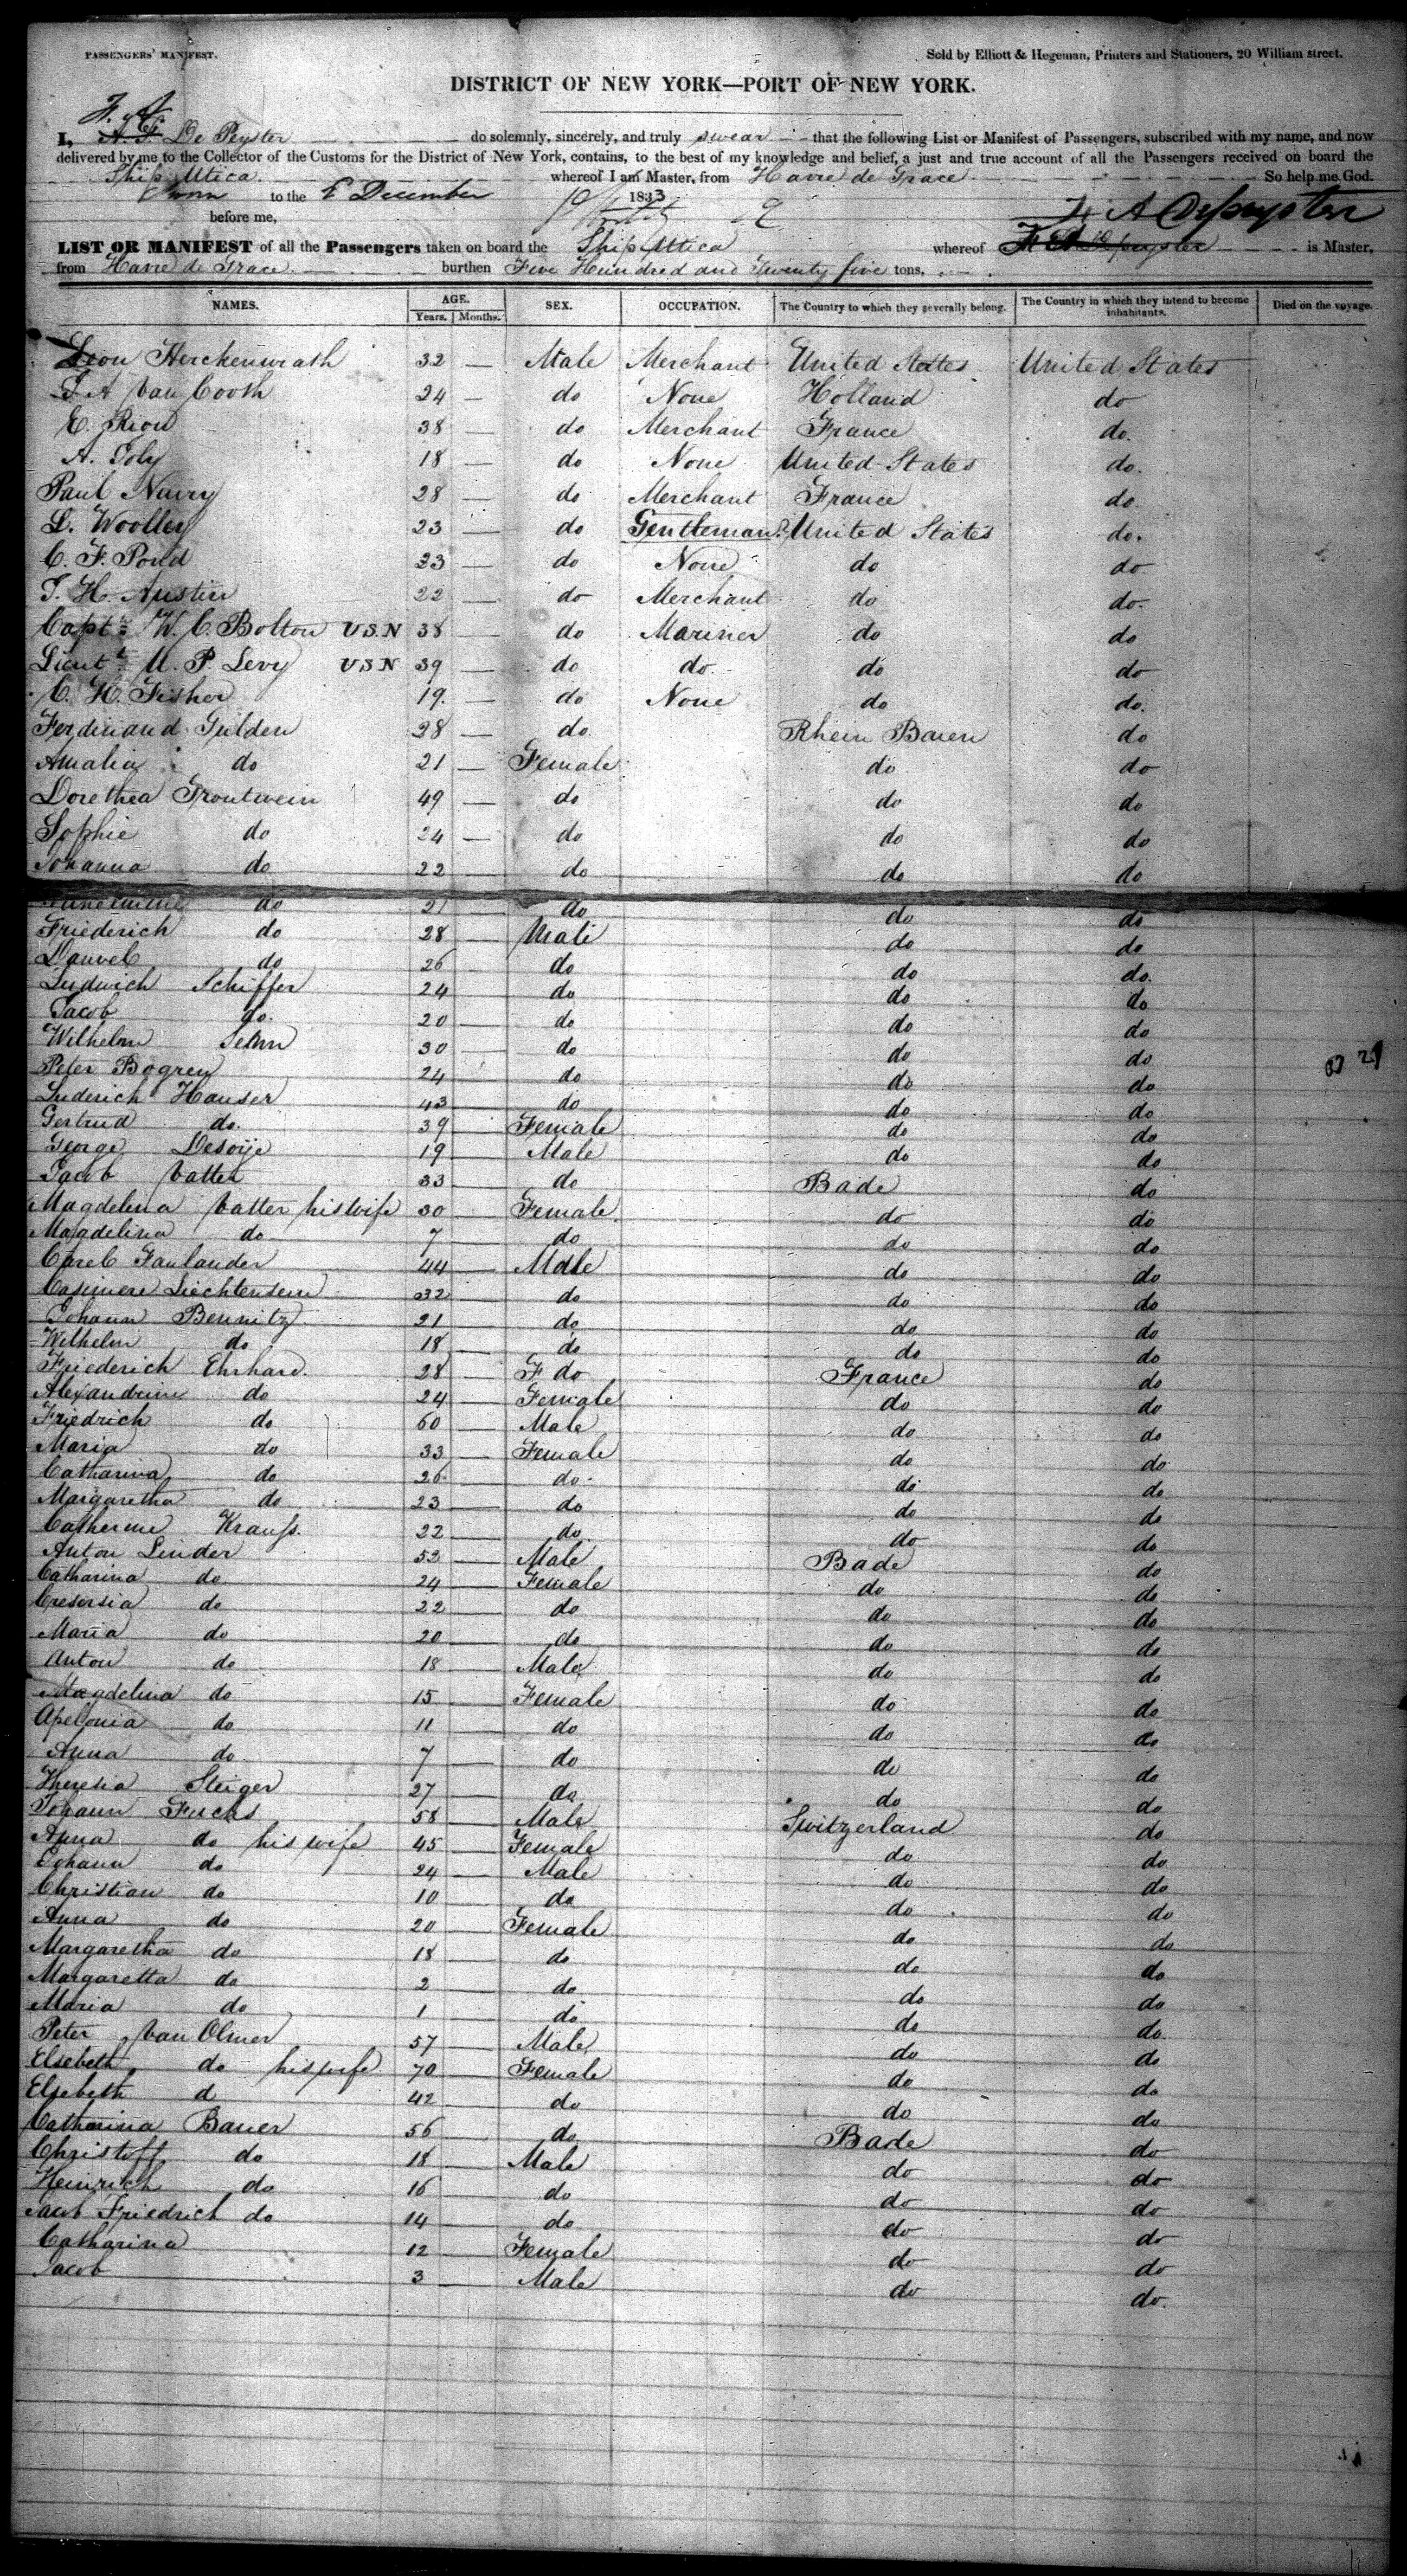 PASSENGERS' MANIFEST. Sold by Elliott & Hegeman, Printers and Stationers, 20 William street.
DISTRICT OF NEW YORK—PORT OF NEW YORK.
I, De Peyster do solemnly, sincerely, and truly swear that the following List or Manifest of Passengers, subscribed with my name, and now
delivered by me to the Collector of the Customs for the District of New York, contains, to the best of my knowledge and belief, a just and true account of all the Passengers received on board the
Ship Utica whereof I am Master, from Havre de Grace So help me God.
Sworn to the December 1833
before me, F A Depeyster
LIST OR MANIFEST of all the Passengers taken on board the Ship Utica whereof is Master,
from Havre de Grace burthen Five Hundred and Twenty five tons,
NAMES. AGE. SEX. OCCUPATION. The Country to which they severally belong. The Country in which they intend to become inhabitants. Died on the voyage.
Years. Months.
Leon Herckenwrath 32 — Male Merchant United States United States
24 — do None Holland do
E. Riou 38 — do Merchant France do.
A. Joly 18 — do None United States do.
Paul Navry 28 — do Merchant France do
L. Woolley 23 — do Gentleman? United States do.
C. F. Pond 23 — do None do do
T. H. Austin 22 — do Merchant do do.
Capt W. C. Bolton U.S.N 38 — do Mariner do do
Lieut U. P. Levy USN 39 — do do do do
C. H. Fisher 19. — do None do do.
Ferdinand Gulden 28 — do. Rhein Baien do
Amalia do 21 — Female do do
Dorethea Troutwein 49 — do do do
Sophie do 24 — do do do
Johanna do 22 — do do do
do 21 do do do
Friederich do 28 Male do do
Danvel do 26 do do do.
Ludwich Schiffer 24 do do do
Jacob do. 20 do do do
Wilhelm 30 do do do
Peter Bogren 24 do do do
Luderich Hauser 43 do do do
Gertrud do. 39 Female do do
George Desoije 19 Male do do
Jacob Vatter 33 do Bade do
Magdelena Vatter his wife 30 Female do do
Magdelina do 7 do do do
Carel Faulander 44 Male do do
Casimere Liechtensein 32 do do do
Johann Bennitz 21 do do do
Wilhelm do 18 do do do
Friederich Ehrhard. 28 F do France do
Alexandrine do 24 Female do do
Friedrich do 60 Male do do
Maria do 33 Female do do
Catharina do 26 do do do
Margaretha do 23 do do do
Catherine Krauss. 22 do do do
Anton Linder 52 Male Bade do
Catharina do 24 Female do do
Cresersia do 22 do do do
Maria do 20 do do do
Anton do 18 Male do do
Magdelina do 15 Female do do
Apelonia do 11 do do do
Anna do 7 do do do
Theresia Steiger 27 do do do
Johann Fuchs 58 Male Switzerland do
Anna do his wife 45 Female do do
Johann do 24 Male do do
Christian do 10 do do do
Anna do 20 Female do do
Margaretha do 18 do do do
Margaretta do 2 do do do
Maria do 1 do do do
Peter Van Olmer 57 Male do do
Elsebeth do his wife 70 Female do do
Elsebeth d 42 do do do
Catharina Bauer 56 do Bade do
Christoff do 18 Male do do
Heinrich do 16 do do do
Jacob Friedrich do 14 do do do
Catharina 12 Female do do
Jacob 3 Male do do.